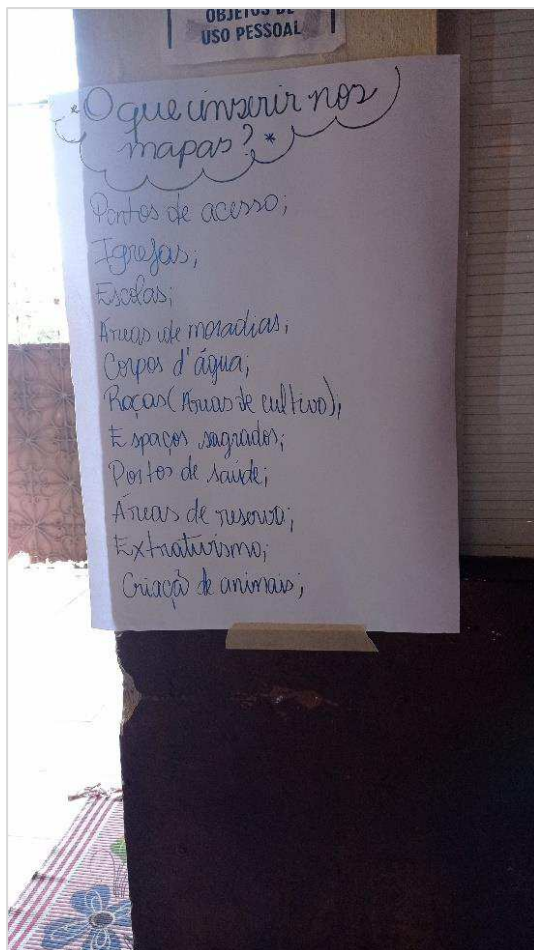 OBJETOS DE
USO PESSOAL
*O que inserir nos
mapas?*
Pontos de acesso;
Igrejas;
Escolas;
Áreas de moradias;
Corpos d'água;
Roças (Áreas de cultivo);
Espaços sagrados;
Postos de saúde;
Áreas de reserva;
Extrativismo;
Criação de animais;